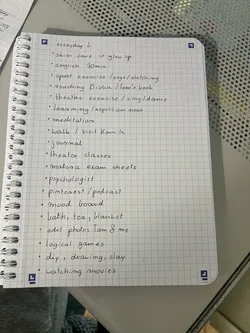 everyday
• skin care
• english 30min
• sport exercise/yoga/stretching
• reading
• theatre exercise / sing / dance
• learning/repetition
• meditation
• walk / visit
• journal
• theater classes
• matura exam sheets
• psychologist
• pinterest / podcast
• mood board
• bath, tea, blanket
• edit photos & me
• logical games
• diy, drawing, clay
• watching movies